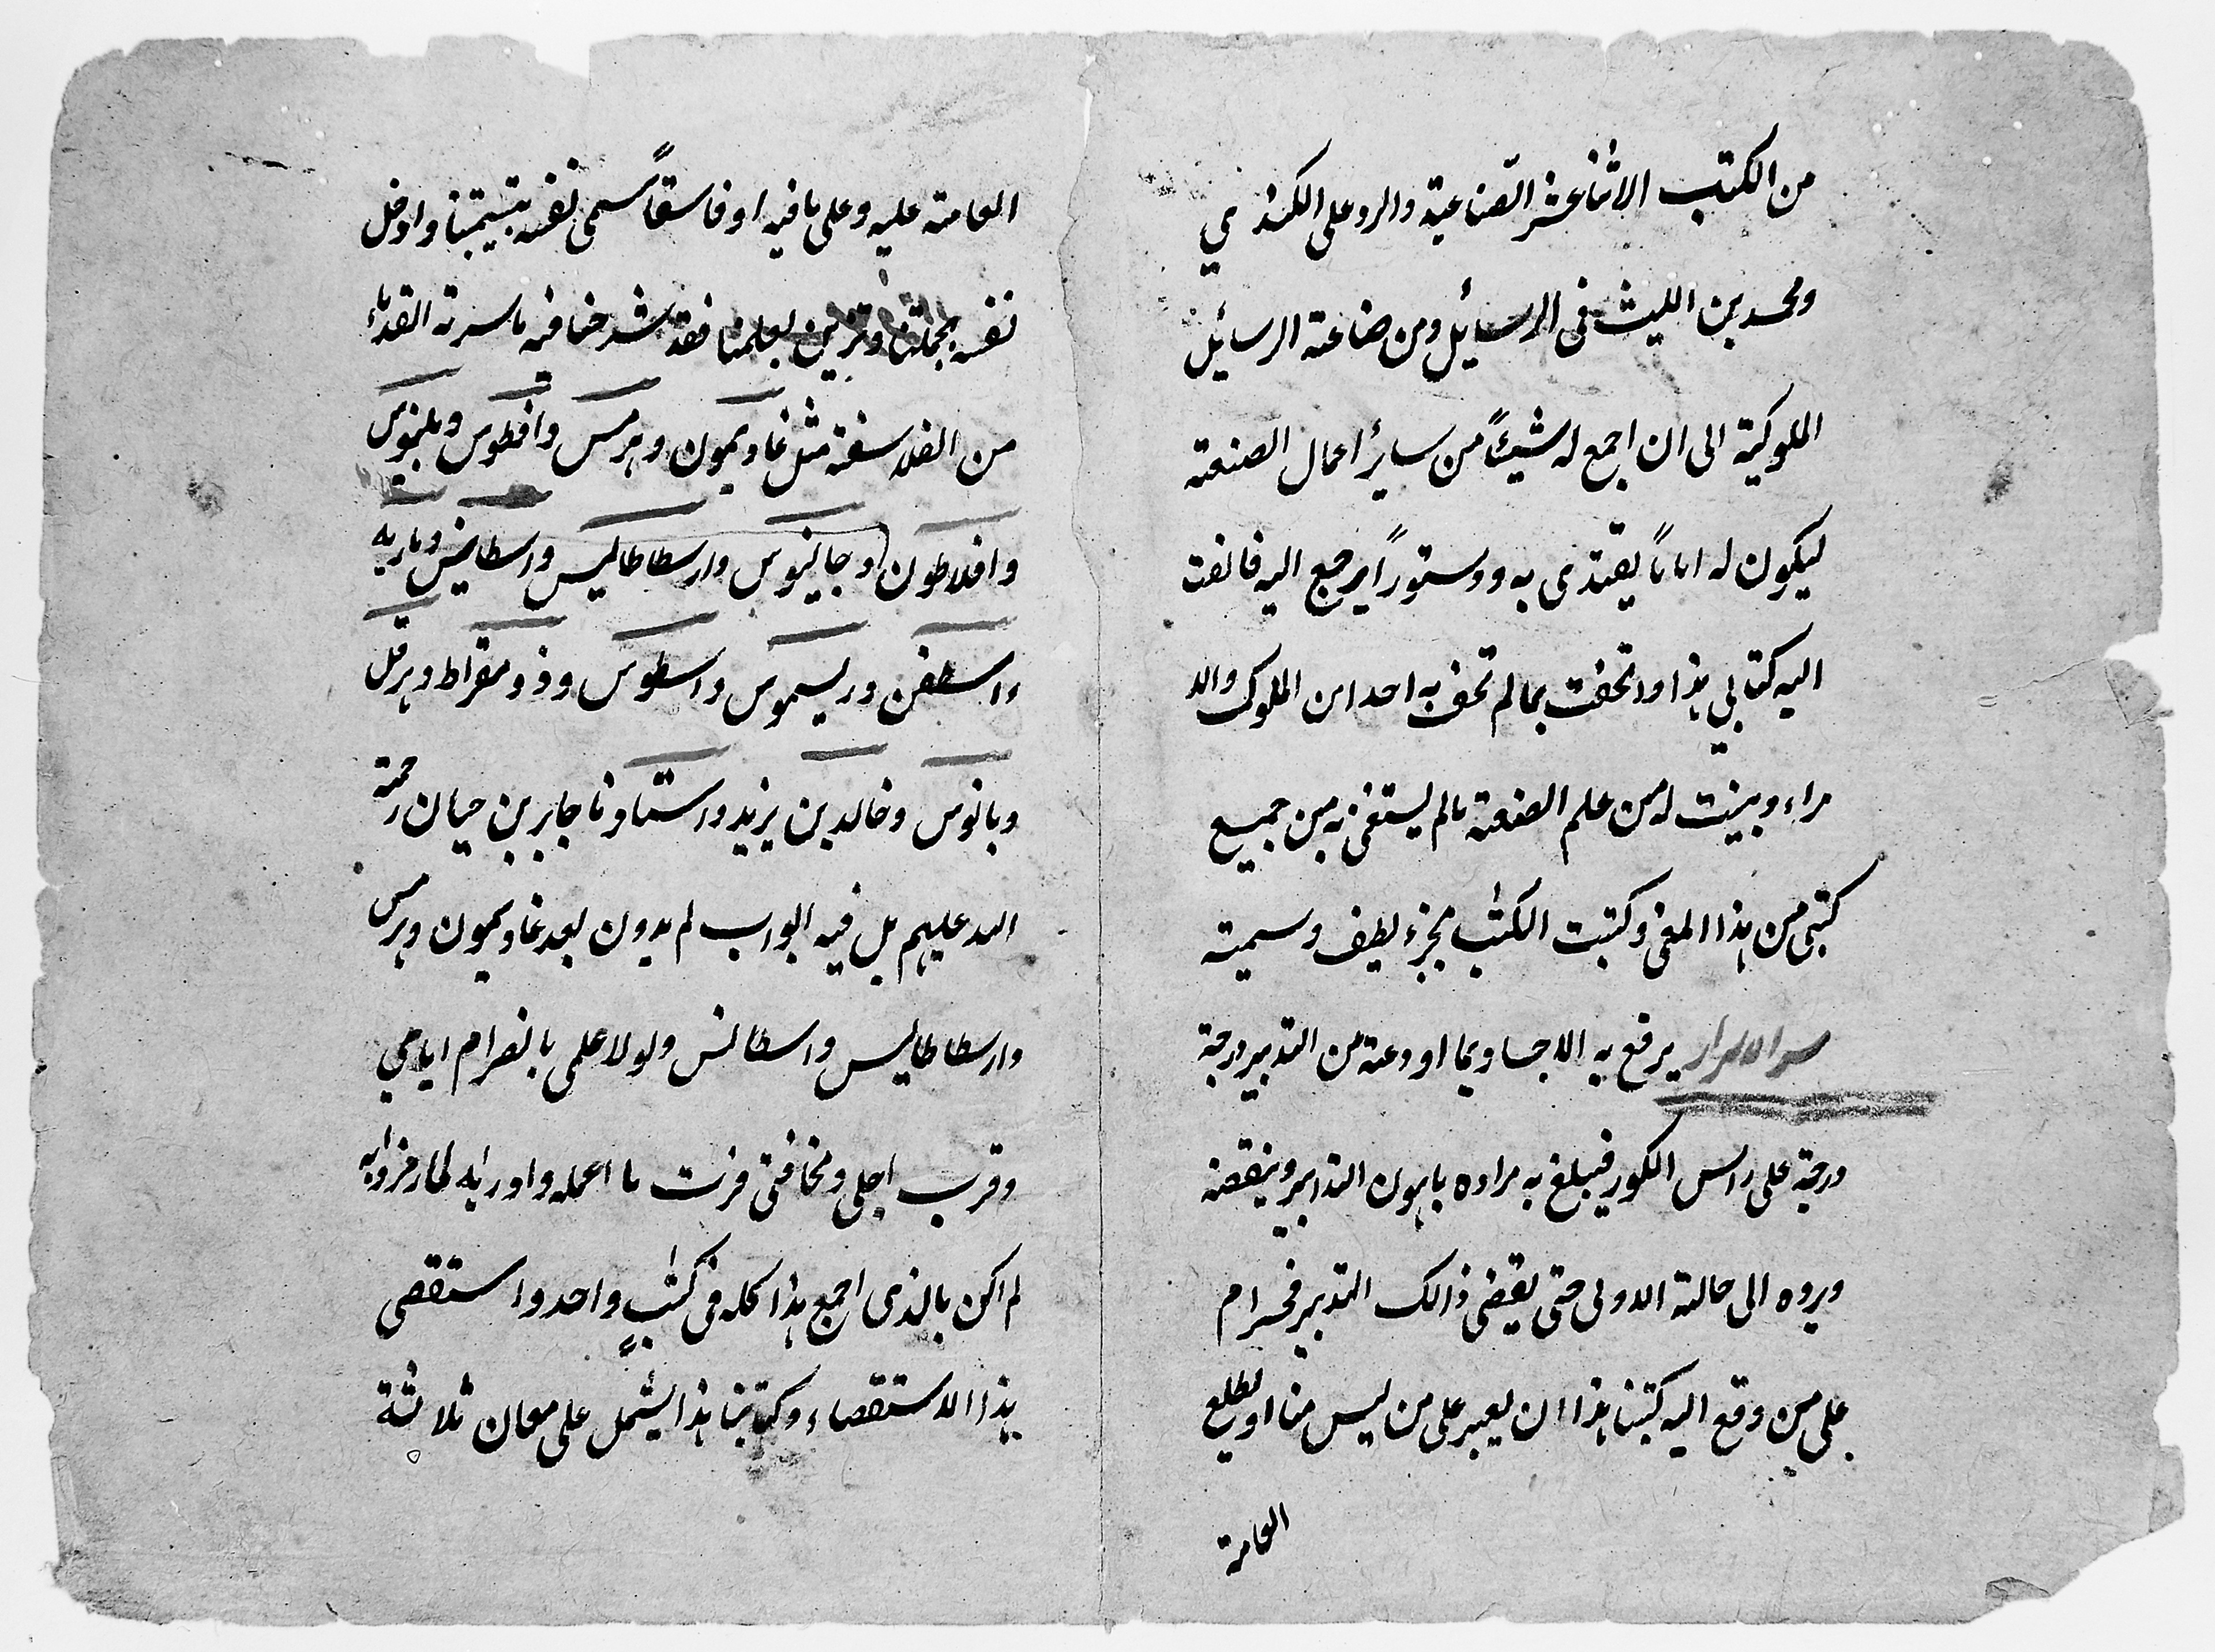 من الكتب الاثنا عشر الصناعية والرد على الكندي
ومحمد بن الليث في الرسائل ومن صناعة الرسائل
الملوكية الى ان اجمع له شيئاً من ساير اعمال الصنعة
ليكون له اماماً يقتدى به ودستوراً يرجع اليه فالفت
اليه كتابي هذا واتحفت بما لم تحف به احدا من الملوك والا
مراء وبينت له من علم الصنعة مالم يستغن به من جميع
كتبى من هذا المعنى وكتبت الكتب بجزء لطيف وسميته
سر الاسرار يرفع به الاجساد بما اودعته من التدبير درجة
درجة على راس الكور فيبلغ به مراده باهون التدابير وينقصه
ويرده الى حالته الاولى حتى يقضى ذالك التدبير فحرام
على من وقع اليه كتبنا هذا ان يعبر على من ليس منا او يطلع
العامة
العامة عليه وعلى مافيه او فاسقاً سمى نفسه بتسيمتنا وادخل
نفسه بجملتنا وتزين بعلمنا فقد شرحنا فيه ماسرته القدماء
من الفلاسفة مثل غاديمون وهرمس واقطوس وبلينوس
وافلاطون وجالينوس وارسطاطاليس واسطانيس وماريه
واسطفن ودريسموس واسطوس وذومقراط وهرقل
وبانوس وخالد بن يزيد واستادنا جابر بن حيان رحمة
الله عليهم بل فيه ابواب لم يدون بعد غاديمون وهرمس
وارسطاطاليس واسطانس ولولا علمى بانصرام ايامي
وقرب اجلى ومخافتى فزت ما اعمله
لم اكن بالذى اجمع هذا كله فى كتبٍ واحد واستقصى
هذا الاستقصاء وكتابنا هذا يشتمل على معان ثلاثة